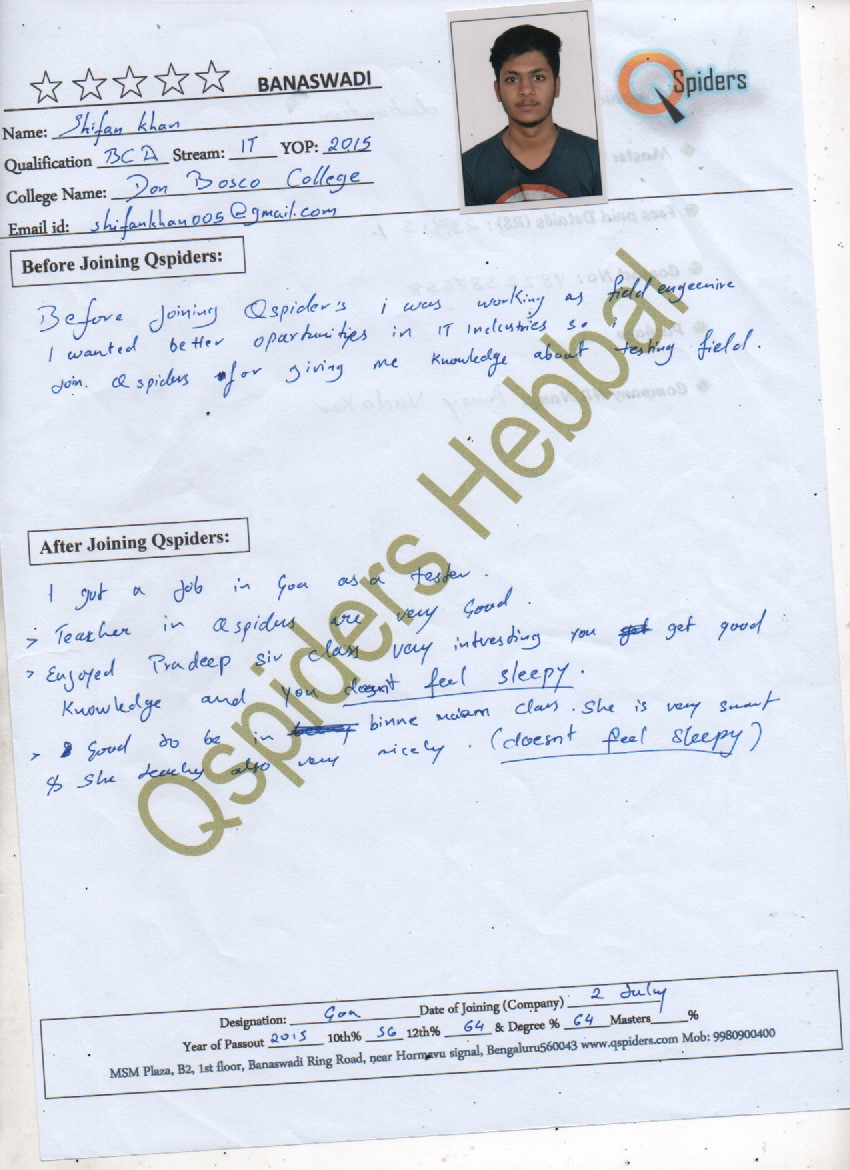 BANASWADI
Q Spiders
Name: Shifan khan
Qualification BCA Stream: IT YOP: 2015
College Name: Don Bosco College
Email id: shifankhan005@gmail.com
Before Joining Qspiders:
Before Joining Qspider's i was working as field engeenire
I wanted better opartunities in IT Industries so i
Join. Qspiders for giving me knowledge about testing field.
Qspiders Hebbal
After Joining Qspiders:
I got a Job in Goa as a tester.
> Teacher in Qspiders are very Good.
> Enjoyed Pradeep Sir class very intresting you get good
Knowledge and you doesnt feel sleepy.
> Good to be in binne maam class. She is very smart
& She teachy also very nicely. (doesnt feel sleepy)
Designation: Goa Date of Joining (Company) 2 July
Year of Passout 2015 10th% 56 12th% 64 & Degree % 64 Masters %
MSM Plaza, B2, 1st floor, Banaswadi Ring Road, near Hormavu signal, Bengaluru560043 www.qspiders.com Mob: 9980900400